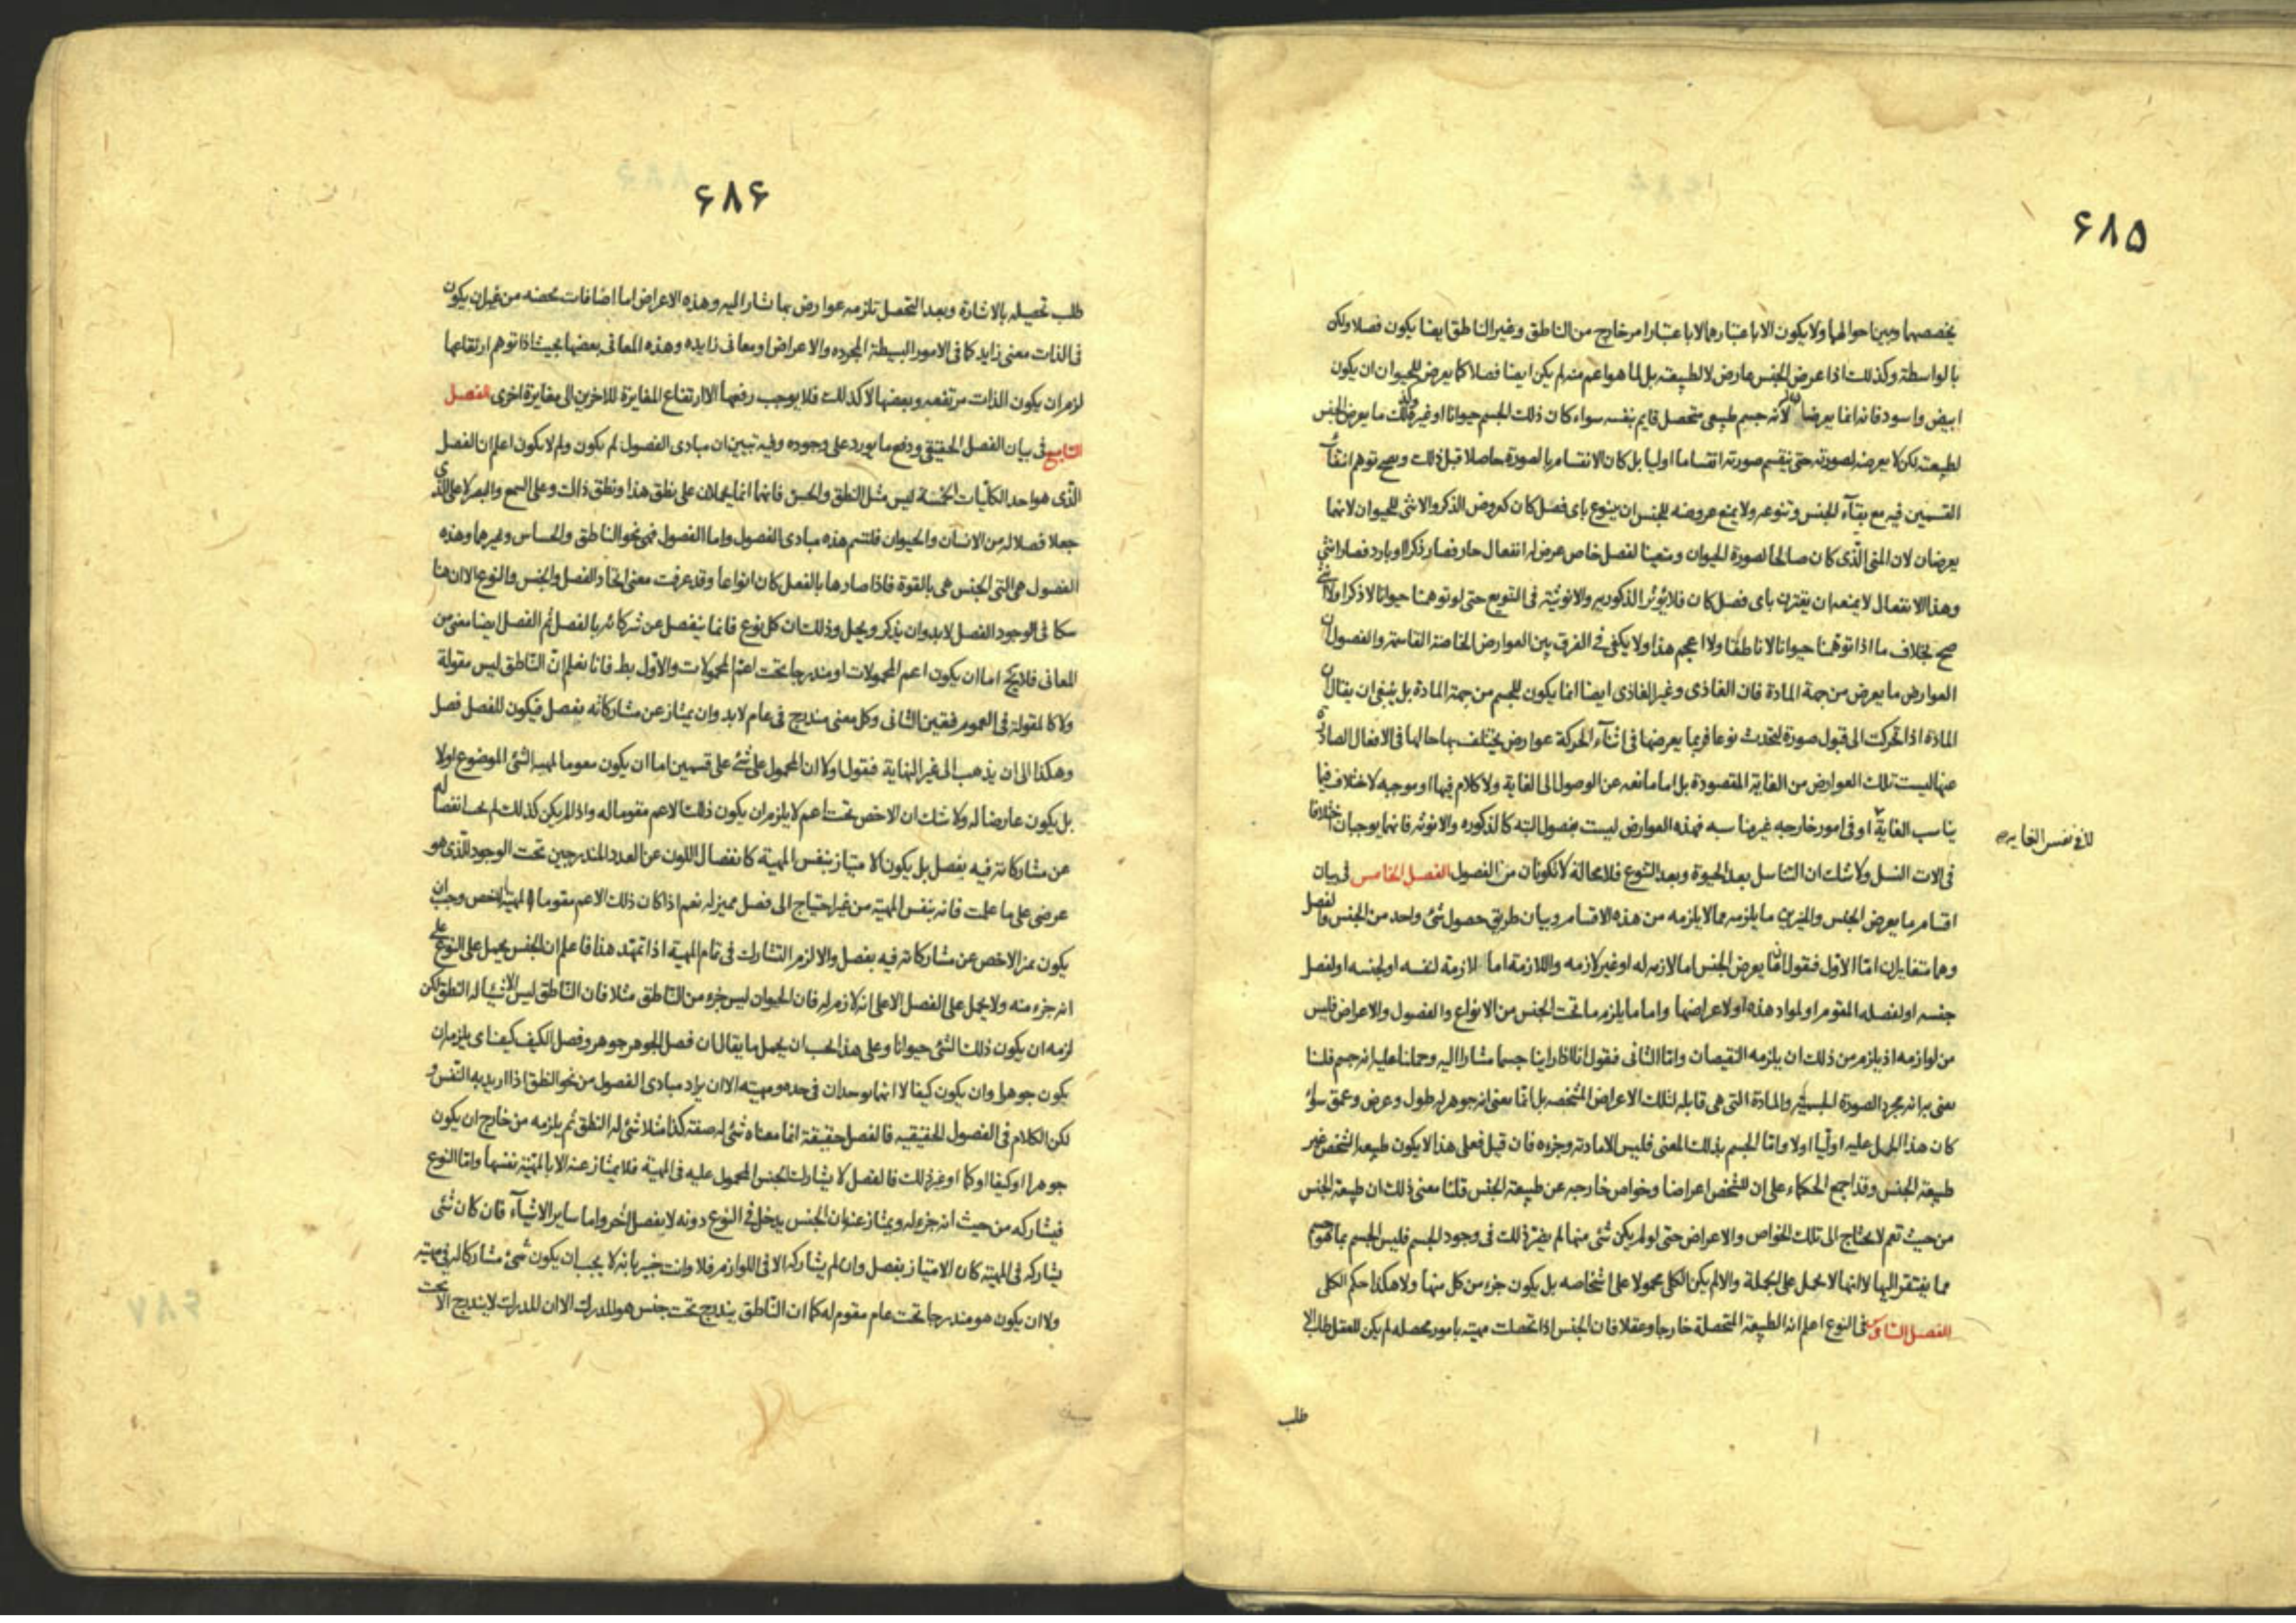 ۶۸۵
يخصصها وبين احوالها ولا يكون الا باعتبارها لا باعتبار امر خارج من الناطق وغير الناطق ايضا يكون فصلا ولكن
بالواسطة وكذلك اذا عرض للجنس عارض لا لطبيعته بل لما هو اعم منه لم يكن ايضا فصلا كما يعرض للحيوان ان يكون
ابيض واسود فانه انما يعرضان لانه جسم طبيعى متحصل قايم بنفسه سواء كان ذلك الجسم حيوانا او غيره وكذلك ما يعرض للجنس
لطبيعته لكن لا يعرضه لصورته حتى ينقسم صورته انقساما اوليا بل كان الانقسام بالصورة حاصلا قبل ذلك ويصح توهم انتفاء
القسمين فيه مع بقاء الجنس وتنوعه ولا يمنع عروضه للجنس ان يتنوع باى فصل كان كعروض الذكر والانثى للحيوان لانهما
يعرضان لان المنى الذى كان صالحا لصورة الحيوان ومتعينا لفصل خاص عرض له انفعال حار فصار ذكرا او بارد فصار انثى
وهذا الانفعال لا يمنعه ان يقترن باى فصل كان فلا يؤثر الذكوريه والانوثية فى التنويع حتى لو توهمنا حيوانا لا ذكرا ولا انثى
صح بخلاف ما اذا توهمنا حيوانا لا ناطقا ولا اعجم هذا ولا يكفى فى الفرق بين العوارض الخاصة القاسمة والفصول ان
العوارض ما يعرض من جهة المادة فان الغاذى وغير الغاذى ايضا انما يكون للجسم من جهة المادة بل ينبغى ان يقال ان
المادة اذا تحركت الى قبول صورة لتحدث نوعا فربما يعرضها فى اثناء الحركة عوارض يختلف بها حالها فى الافعال الصادرة
عنها ليست تلك العوارض من الغاية المقصودة بل اما مانعه عن الوصول الى الغاية ولا كلام فيها او موجبه لاختلاف فيما
يناسب الغاية او فى امور خارجيه غير مناسبه فهذه العوارض ليست بفصول البته كالذكوره والانوثه فانهما يوجبان اختلافا
لا فى نفس الغايه
فى الات النسل ولا شك ان التناسل بعد الحيوة وبعد التنوع فلا محالة لا تكونان من الفصول الفصل الخامس فى بيان
اقسام ما يعرض الجنس والتمييز ما يلزمه مما لا يلزمه من هذه الاقسام وبيان طريق حصول شئ واحد من الجنس والفصل
وهما متغايران اما الاول فنقول ان ما يعرض الجنس اما لازمه له او غير لازمه واللازمة اما لازمة لنفسه او لجنسه او لفصل
جنسه او لفصله المقوم او لمواد هذه او لاعراضها واما ما يلزم ما تحت الجنس من الانواع والفصول والاعراض فليس
من لوازمه اذ يلزم من ذلك ان يلزمه النقيضان واما الثانى فنقول انا اذا راينا جسما مشارا اليه وحملنا عليه انه جسم فلسنا
نعنى به انه مجرد الصورة الجسمية والمادة التى هى قابله لتلك الاعراض المشخصه بل انما نعنى انه جوهر له طول وعرض وعمق سواء
كان هذا الحمل عليه اوليا او لا واما الجسم بذلك المعنى فليس الا مادته وجزءه فان قيل فعلى هذا لا يكون طبيعه الشخص غير
طبيعة الجنس وقد اجمع الحكماء على ان للشخص اعراضا وخواص خارجه عن طبيعة الجنس قلنا معنى ذلك ان طبيعة الجنس
من حيث تعم لا يحتاج الى تلك الخواص والاعراض حتى لو لم يكن شئ منها لم يضر ذلك فى وجود الجسم فليس الجسم بما هو جسم
مما يفتقر اليها لا انها لا يحمل على الجملة والا لم يكن الكلى محمولا على اشخاصه بل يكون جزء من كل منها ولا هكذا حكم الكلى
الفصل السادس فى النوع اعلم انه الطبيعة المتحصلة خارجا وعقلا فان الجنس اذا تحصلت مهيته بامور محصله لم يكن للعقل طلب الا
طلب
۶۸۶
طلب تحصيله بالاشارة وبعد التحصل تلزمه عوارض بها نشار اليه وهذه الاعراض اما اضافات محضه من غير ان يكون
فى الذات معنى زايد كما فى الامور البسيطة المجرده والاعراض او معانى زايده وهذه المعانى بعضها بحيث اذا توهم ارتفاعها
لزم ان يكون الذات مرتفعه وبعضها لا كذلك فلا يوجب رفعها الا ارتفاع المغايرة للاخرين الى مغايرة اخرى الفصل
السابع فى بيان الفصل الحقيقى ودفع ما يورد على وجوده وفيه تبيين ان مبادى الفصول لم يكون ولم لا يكون اعلم ان الفصل
الذى هو احد الكليات الخمسة ليس مثل النطق والحس فانهما انما يحملان على نطق هذا ونطق ذاك وعلى السمع والبصر لا على الذى
جعلا فصلا له من الانسان والحيوان فلتسم هذه مبادى الفصول واما الفصول فهى نحو الناطق والحساس وغيرهما وهذه
الفصول هى التى الجنس هى بالقوة فاذا صارها بالفعل كان انواعا وقد عرفت معنى اتحاد الفصل والجنس والنوع الا ان هنا
شكا فى الوجود الفصل لابد وان يذكر ويحل وذلك ان كل نوع فانما ينفصل عن شركائه بالفصل ثم الفصل ايضا معنى من
المعانى فلا يخ اما ان يكون اعم المحمولات او مندرجا تحت اعم المحمولات والاول بط فانا نعلم ان الناطق ليس مقولة
ولا كالمقولة فى العموم فتعين الثانى وكل معنى مندرج فى عام لابد وان يمتاز عن مشاركاته بفصل فيكون للفصل فصل
وهكذا الى ان يذهب الى غير النهاية فنقول اولا ان المحمول على شئ على قسمين اما ان يكون مقوما لمهيه الشئ الموضوع او لا
بل يكون عارضا له ولا شك ان الاخص تحت اعم لا يلزم ان يكون ذلك الاعم مقوما له واذا لم يكن كذلك لم يجب انفصاله
عن مشاركاته فيه بفصل بل يكون الامتياز بنفس المهية كانفصال اللون عن العدد المندرجين تحت الوجود الذى هو
عرضى على ما علمت فانه بنفس المهية من غير احتياج الى فصل مميز له نعم اذا كان ذلك الاعم مقوما لمهية الاخص وجب ان
يكون تميز الاخص عن مشاركاته فيه بفصل والا لزم التشارك فى تمام المهية اذا تمهد هذا فاعلم ان الجنس يحمل على النوع على
انه جزء منه ولا يحمل على الفصل الا على انه لازم له فان الحيوان ليس جزء من الناطق مثلا فان الناطق ليس الا شيئا له النطق لكن
لزمه ان يكون ذلك الشئ حيوانا وعلى هذا يجب ان يحمل ما يقال ان فصل الجوهر جوهر وفصل الكيف كيف اى يلزم ان
يكون جوهرا وان يكون كيفا لا انهما يوجدان فى حده ومهيته الا ان يراد مبادى الفصول من نحو النطق اذا اريد به النفس و
لكن الكلام فى الفصول الحقيقيه فالفصل حقيقة انما معناه شئ له صفة كذا مثلا شئ له النطق ثم يلزمه من خارج ان يكون
جوهرا او كيفا او كما او غير ذلك فالفصل لا يشارك الجنس المحمول عليه فى المهية فلا يمتاز عنه الا بالمهية نفسها واما النوع
فيشاركه من حيث انه جزء له ويمتاز عنه بان الجنس يدخل فى النوع دونه لا بفصل اخر واما ساير الاشياء فان كان شئ
يشاركه فى المهية كان الامتياز بفصل وان لم يشاركه الا فى اللوازم فلا وانت خبير بانه لا يجب ان يكون شئ مشاركا له فى مهيته
ولا ان يكون هو مندرجا تحت عام مقوم له كما ان الناطق يندرج تحت جنس هو المدرك الا ان المدرك لا يندرج الا تحت